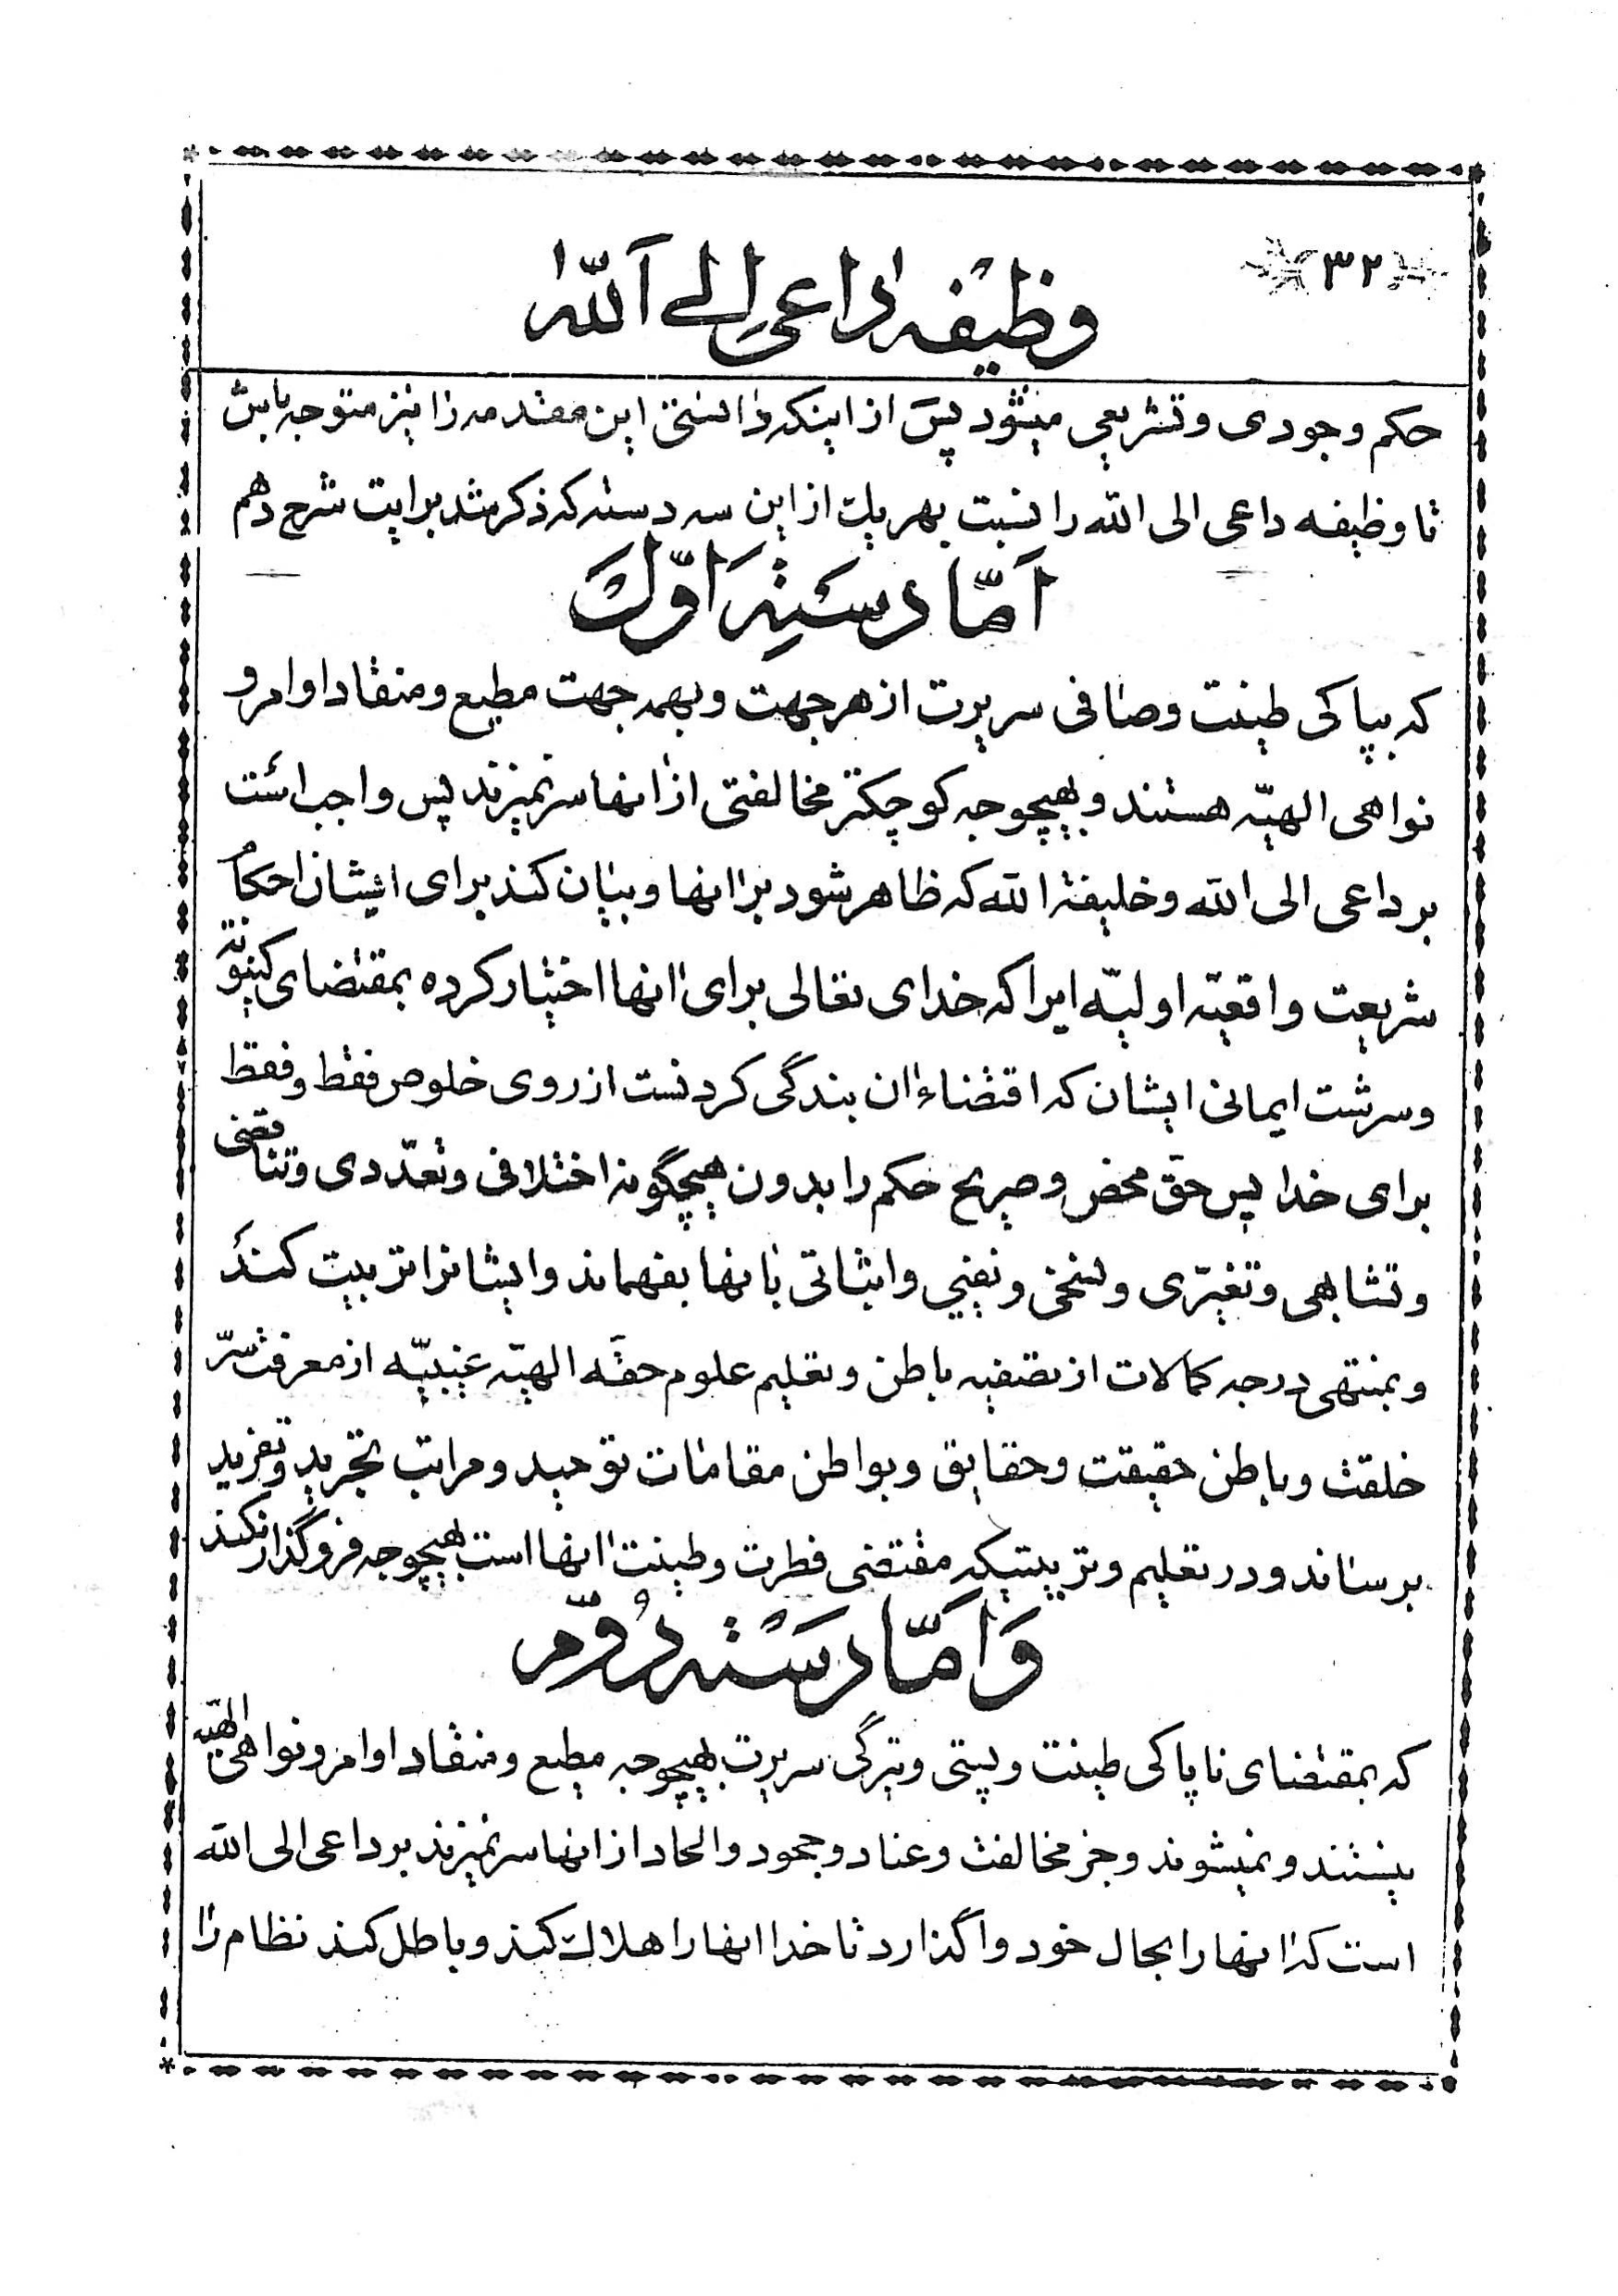 ﴿۳۲﴾
وظیفه داعی الی الله
حکم وجودی وتشریعی میشود پس از اینکه دانستی این مقدمه را نیز متوجه باش
تا وظیفه داعی الی الله را نسبت بهر یک از این سه دسته که ذکر شد برایت شرح دهم
امّا دسته اوّل
که بپاکی طینت وصافی سریرت از هر جهت وبهمه جهت مطیع ومنقاد اوامر و
نواهی الهیّه هستند وبهیچوجه کوچکتر مخالفتی از انها سر نمیزند پس واجب است
بر داعی الی الله وخلیفة الله که ظاهر شود بر انها وبیان کند برای ایشان احکام
شریعت واقعیّه اولیّه ایرا که خدای تعالی برای انها اختیار کرده بمقتضای کینونة
وسرشت ایمانی ایشان که اقتضاء ان بندگی کردنست از روی خلوص فقط وفقط
برای خدا پس حق محض وصریح حکم را بدون هیچگونه اختلافی وتعدّدی وتناقضی
وتشابهی وتغیّری ونسخی ونفیی واثباتی بانها بفهماند وایشانرا تربیت کند
وبمنتهی درجه کمالات از تصفیه باطن وتعلیم علوم حقّه الهیّه غیبیّه از معرفت سرّ
خلقت وباطن حقیقت وحقایق وبواطن مقامات توحید ومراتب تجرید وتفرید
برساند ودر تعلیم وتربیتیکه مقتضی فطرت وطینت انها است بهیچوجه فروگذار نکند
وَامّا دسته دُوّم
که بمقتضای ناپاکی طینت وپستی وتیرگی سریرت بهیچوجه مطیع ومنقاد اوامر ونواهی الهیّه
نیستند ونمیشوند وجز مخالفت وعناد وجحود والحاد از انها سر نمیزند بر داعی الی الله
است که انها را بحال خود واگذارد تا خدا انها را هلاک کند وباطل کند نظام را